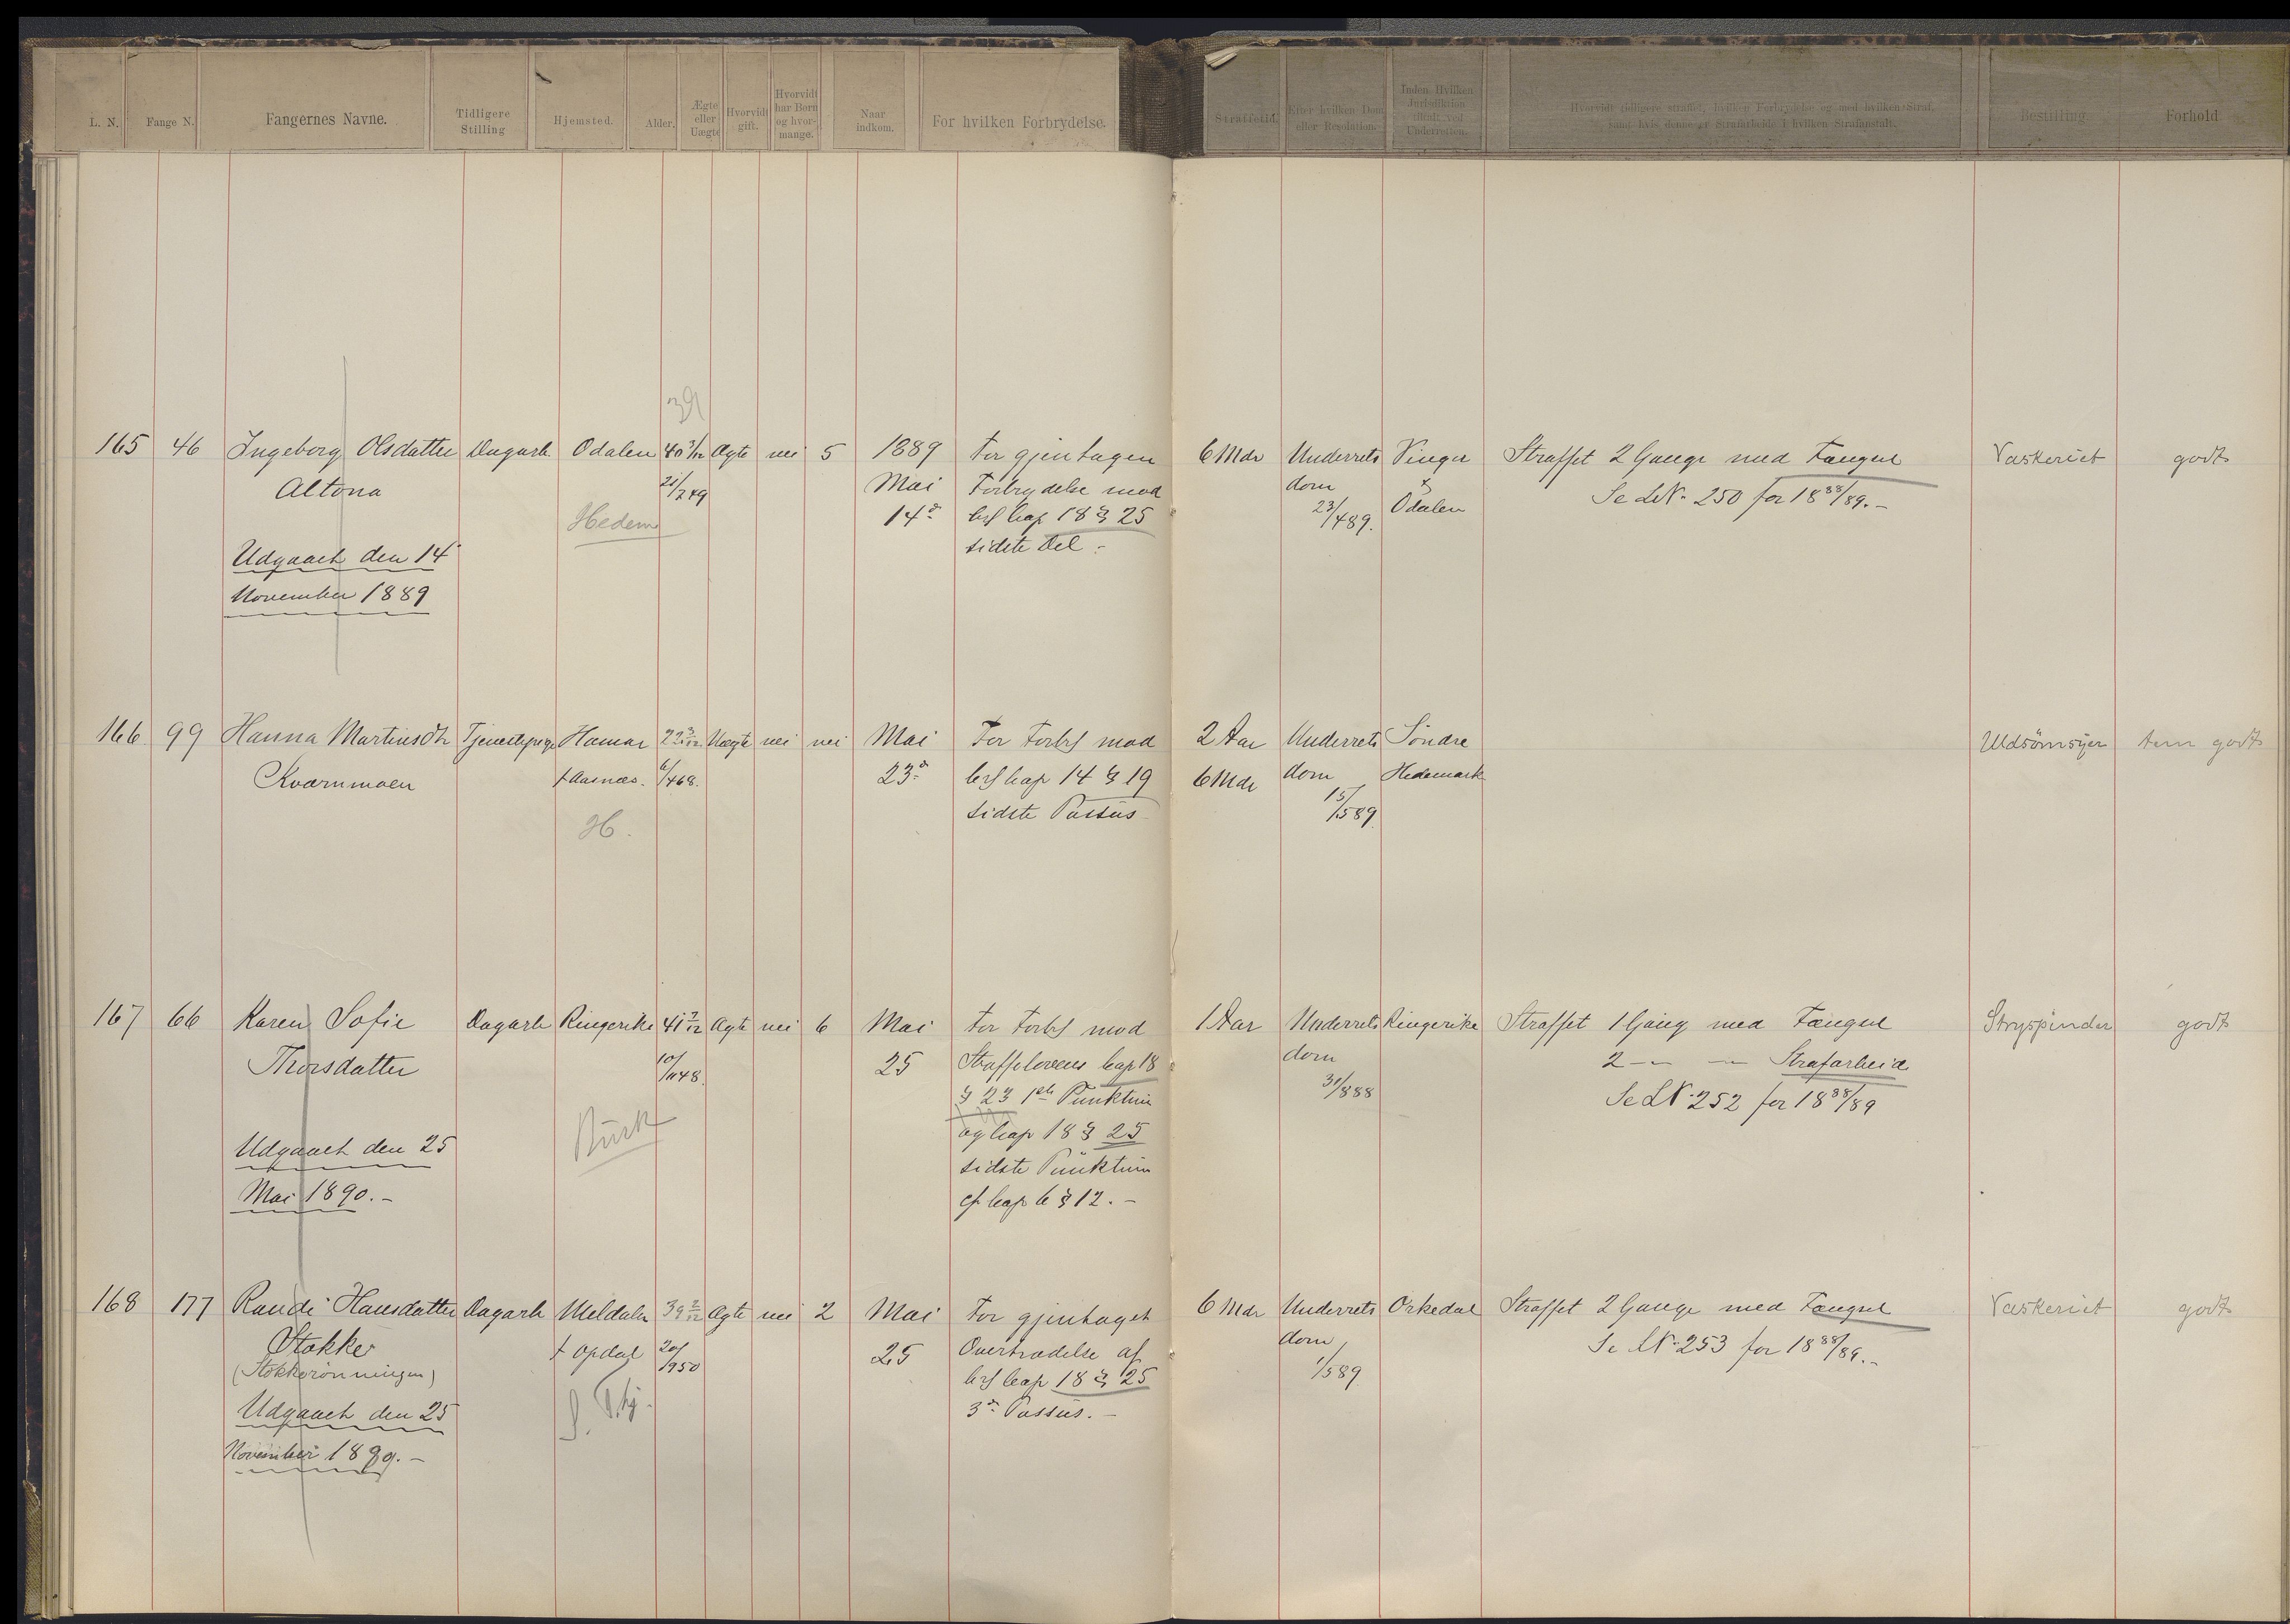 L. N.
Fange N.
Fangernes Navne.
Tidligere
Stilling
Hjemsted.
Alder.
Ægte
eller
Uægte
Hvorvidt
gift.
Hvorvidt
har Børn
og hvor-
mange.
Naar
indkom.
For hvilken Forbrydelse.
Straffetid.
Efter hvilken Dom
eller Resolution.
Inden Hvilken
Jurisdiktion
tiltalt ved
Underretten.
Hvorvidt tidligere straffet, hvilken Forbrydelse og med hvilken Straf,
samt hvis denne er Strafarbeide i hvilken Strafanstalt.
Bestilling
Forhold
39
165 46 Ingeborg Olsdatter Dagarb Odalen 40 3/12 Ægte nei 5 1889 For gjentagen 6 Mdr Underrets Vinger Straffet 2 Gange med Fængsel Vaskeriet godt
Altona 21/2 49 Mai Forbrydelse mod dom & Se LN. 250 for 18 88/89.-
Hedem 14de Crl Cap 18 § 25 23/4 89. Odalen
Udgaaet den 14 sidste Del.-
November 1889
166 99 Hanna Martinsdtr Tjenestepige Hamar Uægte nei nei Mai For Forbr mod 2 Aar Underrets Søndre Uldsömsyer tem godt
Kværnmoen f Aasnæs. 6/4 68. 23de Crl Cap 14 § 19 6 Mdr dom Hedemark
H. sidste Passus 15/5 89.
167 66 Karen Sofie Dagarb Ringerike 41 7/12 Ægte nei 6 Mai For Forbr mod 1 Aar Underrets Ringerike Straffet 1 Gang med Fængsel Stryspinder godt
Thorsdatter 10/10 48. 25 Straffelovens Cap 18 dom 2 - - Strafarbeid
§ 23 1ste Punktum 31/8 88 Se LN. 252 for 18 88/89
Busk og Cap 18 § 25
Udgaaet den 25 sidste Punktum
Mai 1890.- cf Cap 6 § 12.-
168 177 Randi Hansdatter Dagarb Meldalen 39 2/12 Ægte nei 2 Mai For gjentaget 6 Mdr Underrets Orkedal Straffet 2 Gange med Fængsel Vaskeriet godt
Stokke f Opdal 20/9 50 25 Overtrædelse af dom Se LN. 253 for 18 88/89.-
(Stokkerönningen) Crl Cap 18 § 25 1/5 89
Udgaaet den 25 S. Thj. 3de Passus.-
November 1889.-